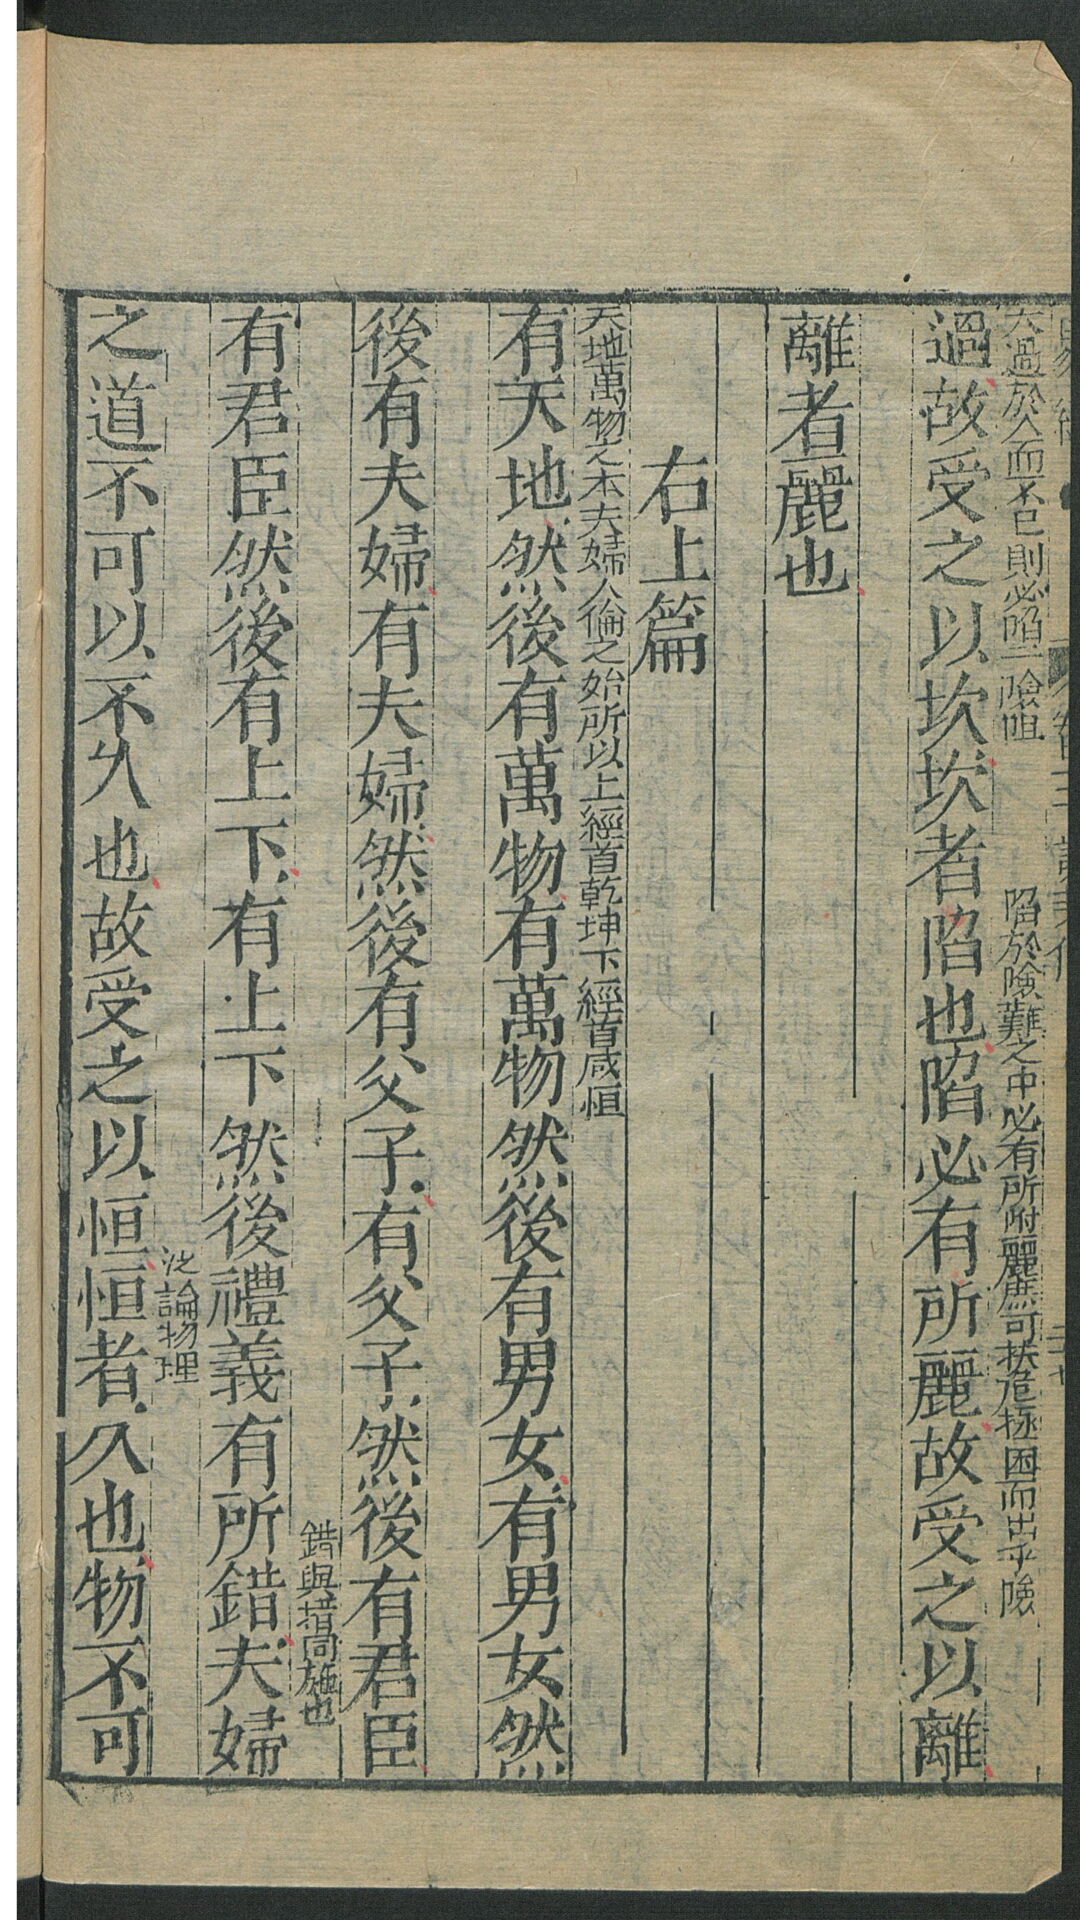 大過於人而不已則必陷一險阻　陷於險難之中必有所附麗庶可扶危拯困而出乎險
過故受之以坎坎者陷也陷必有所麗故受之以離
離者麗也
右上篇
天地萬物之本夫婦人倫之始所以上經首乾坤下經首咸恒
有天地然後有萬物有萬物然後有男女有男女然
後有夫婦有夫婦然後有父子有父子然後有君臣
錯與措同施也
有君臣然後有上下有上下然後禮義有所錯夫婦
泛論物理
之道不可以不久也故受之以恒恒者久也物不可